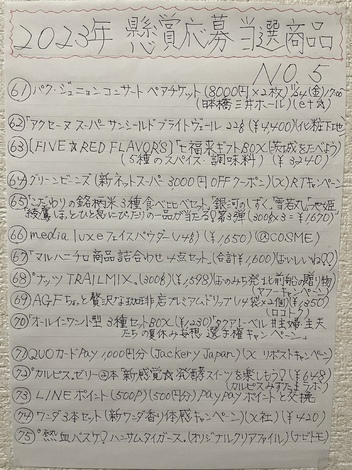 2023年 懸賞応募当選商品
NO.5
61 パク・ジュニョンコンサートペアチケット(8000円×2枚)(金)
(日本橋三井ホール)
62 「アクセーヌ スーパーサンシールドブライトヴェール 22g(¥4400)化粧下地
63 (FIVE☆RED FLAVORS)七福来ギフトBOX(茨城をたべよう)
(5種のスパイス・調味料)(¥3240)
64 グリーンビーンズ(新ネットスーパー3000円OFFクーポン)(X)RTキャンペーン
65 こだわりの銘柄米3種食べ比べセット。"銀河のしずく、雪若丸、つや姫
第3弾(300g×3=¥1670)
66 media luxeフェイスパウダー(¥1,650)(@COSME)
67 「マルハニチロ商品詰合わせ4点セット。(合計¥1,600)
68 "ナッツ TRAILMIX。(300g)(¥1,598)
69 AGFちょっと贅沢な珈琲店プレミアムドリップ(14袋×2個)
70 「オールインワン型 3種セットBOX(¥1230)"クアトールベール
71 QUOカードPay 1,000円分(Jackery Japan)(X リポストキャンペーン)
72 "カルピス。ゼリーの本 新感覚☆発酵スイーツを楽しもう?(¥648)
73 LINEポイント(500P)(500円分)PayPayポイントと交換
74 ワンダ3本セット(新ワンダ香り体感キャンペーン)(X社)(¥420)
75 "熱血バスケ? ハニサムタイガース。(オリジナルクリアファイル)